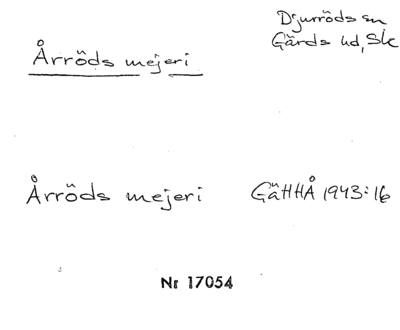 Årröds mejeri
Djurröds sn
Gärds hd, Sk
Årröds mejeri GäHHÅ 1943:16
Nr 17054